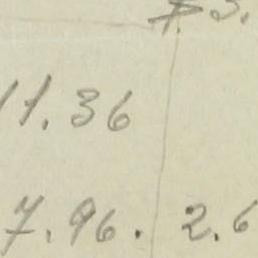 11.36
7.96. 2.6